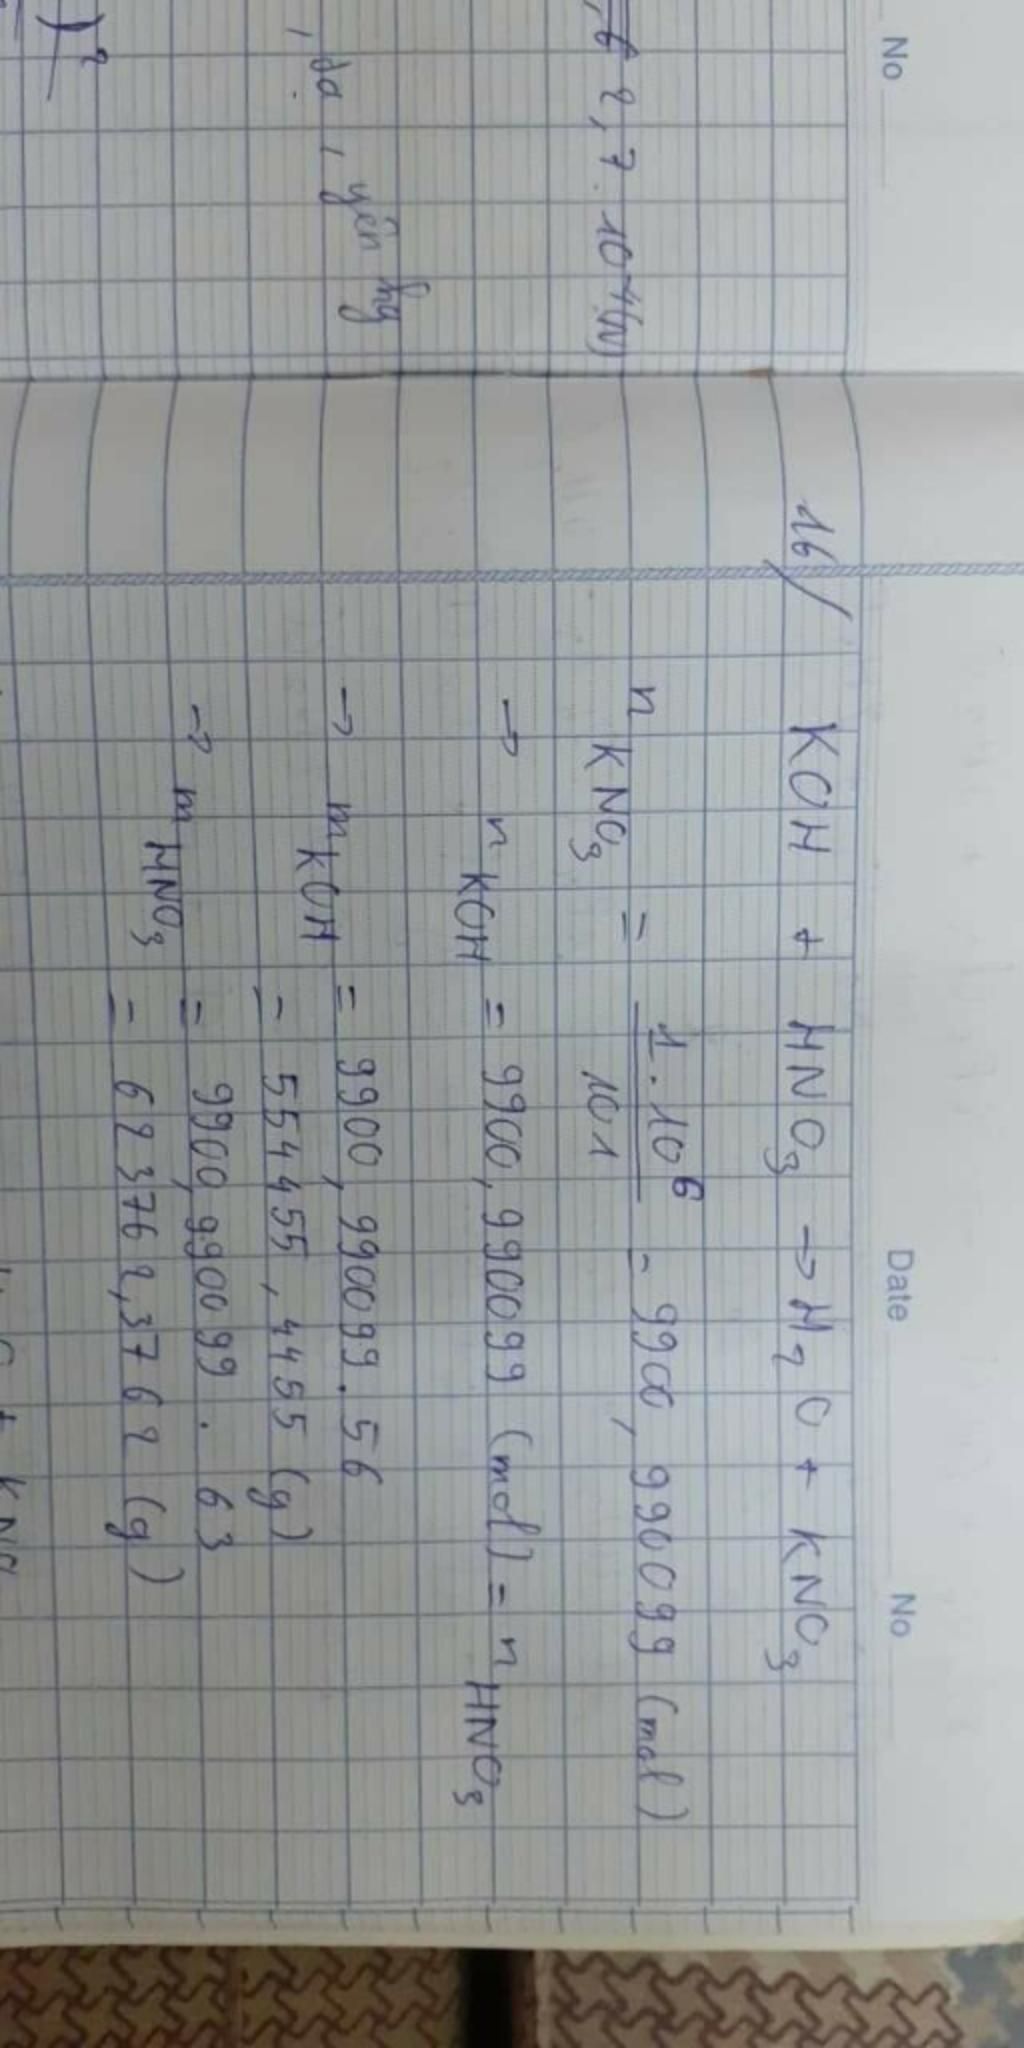 No
Date
No
, 2,7.10⁻⁴(N)
, da, yên hg
)²
16/ KOH + HNO₃ → H₂O + KNO₃
n KNO₃ = 1.10⁶ / 101 = 9900,990099 (mol)
→ n KOH = 9900,990099 (mol) = n HNO₃
→ m KOH = 9900,990099.56
= 554455,4455 (g)
→ m HNO₃ = 9900,990099.63
= 623762,3762 (g)